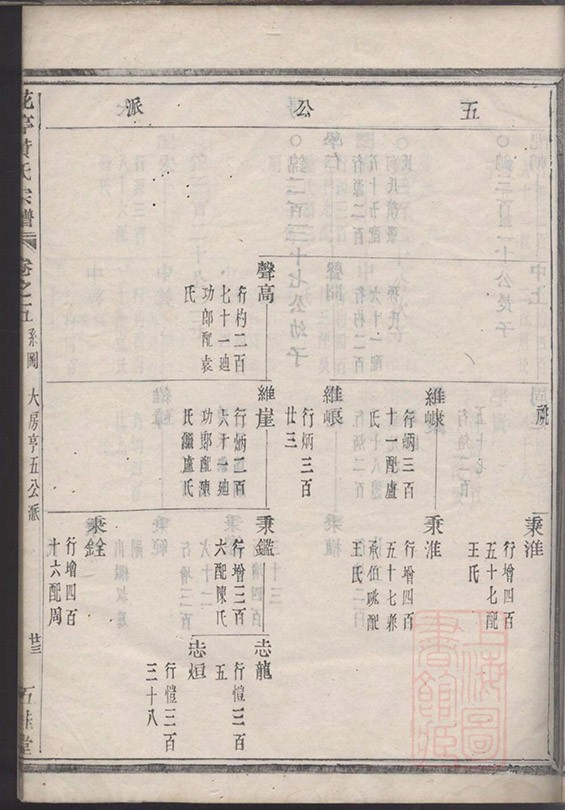 五公派
祧
秉淮
行增四百
五十七配
王氏
維㠓
行炳三百
十一配盧
氏
秉淮
行增四百
五十七兼
承伯祧配
王氏
維㠓
行炳三百
廿三
聲高
行杓二百
七十一迪
功郎配袁
氏
維崖
行炳三百
六十一迪
功郎配陳
氏繼盧氏
秉鑑
行增三百
六配陳氏
志龍
行愷三百
五
志烜
行愷三百
三十八
秉銓
行增四百
十六配周
花亭黄氏宗譜
卷之五
系圖
大房亨五公派
廿三
五桂堂
上海圖書館藏